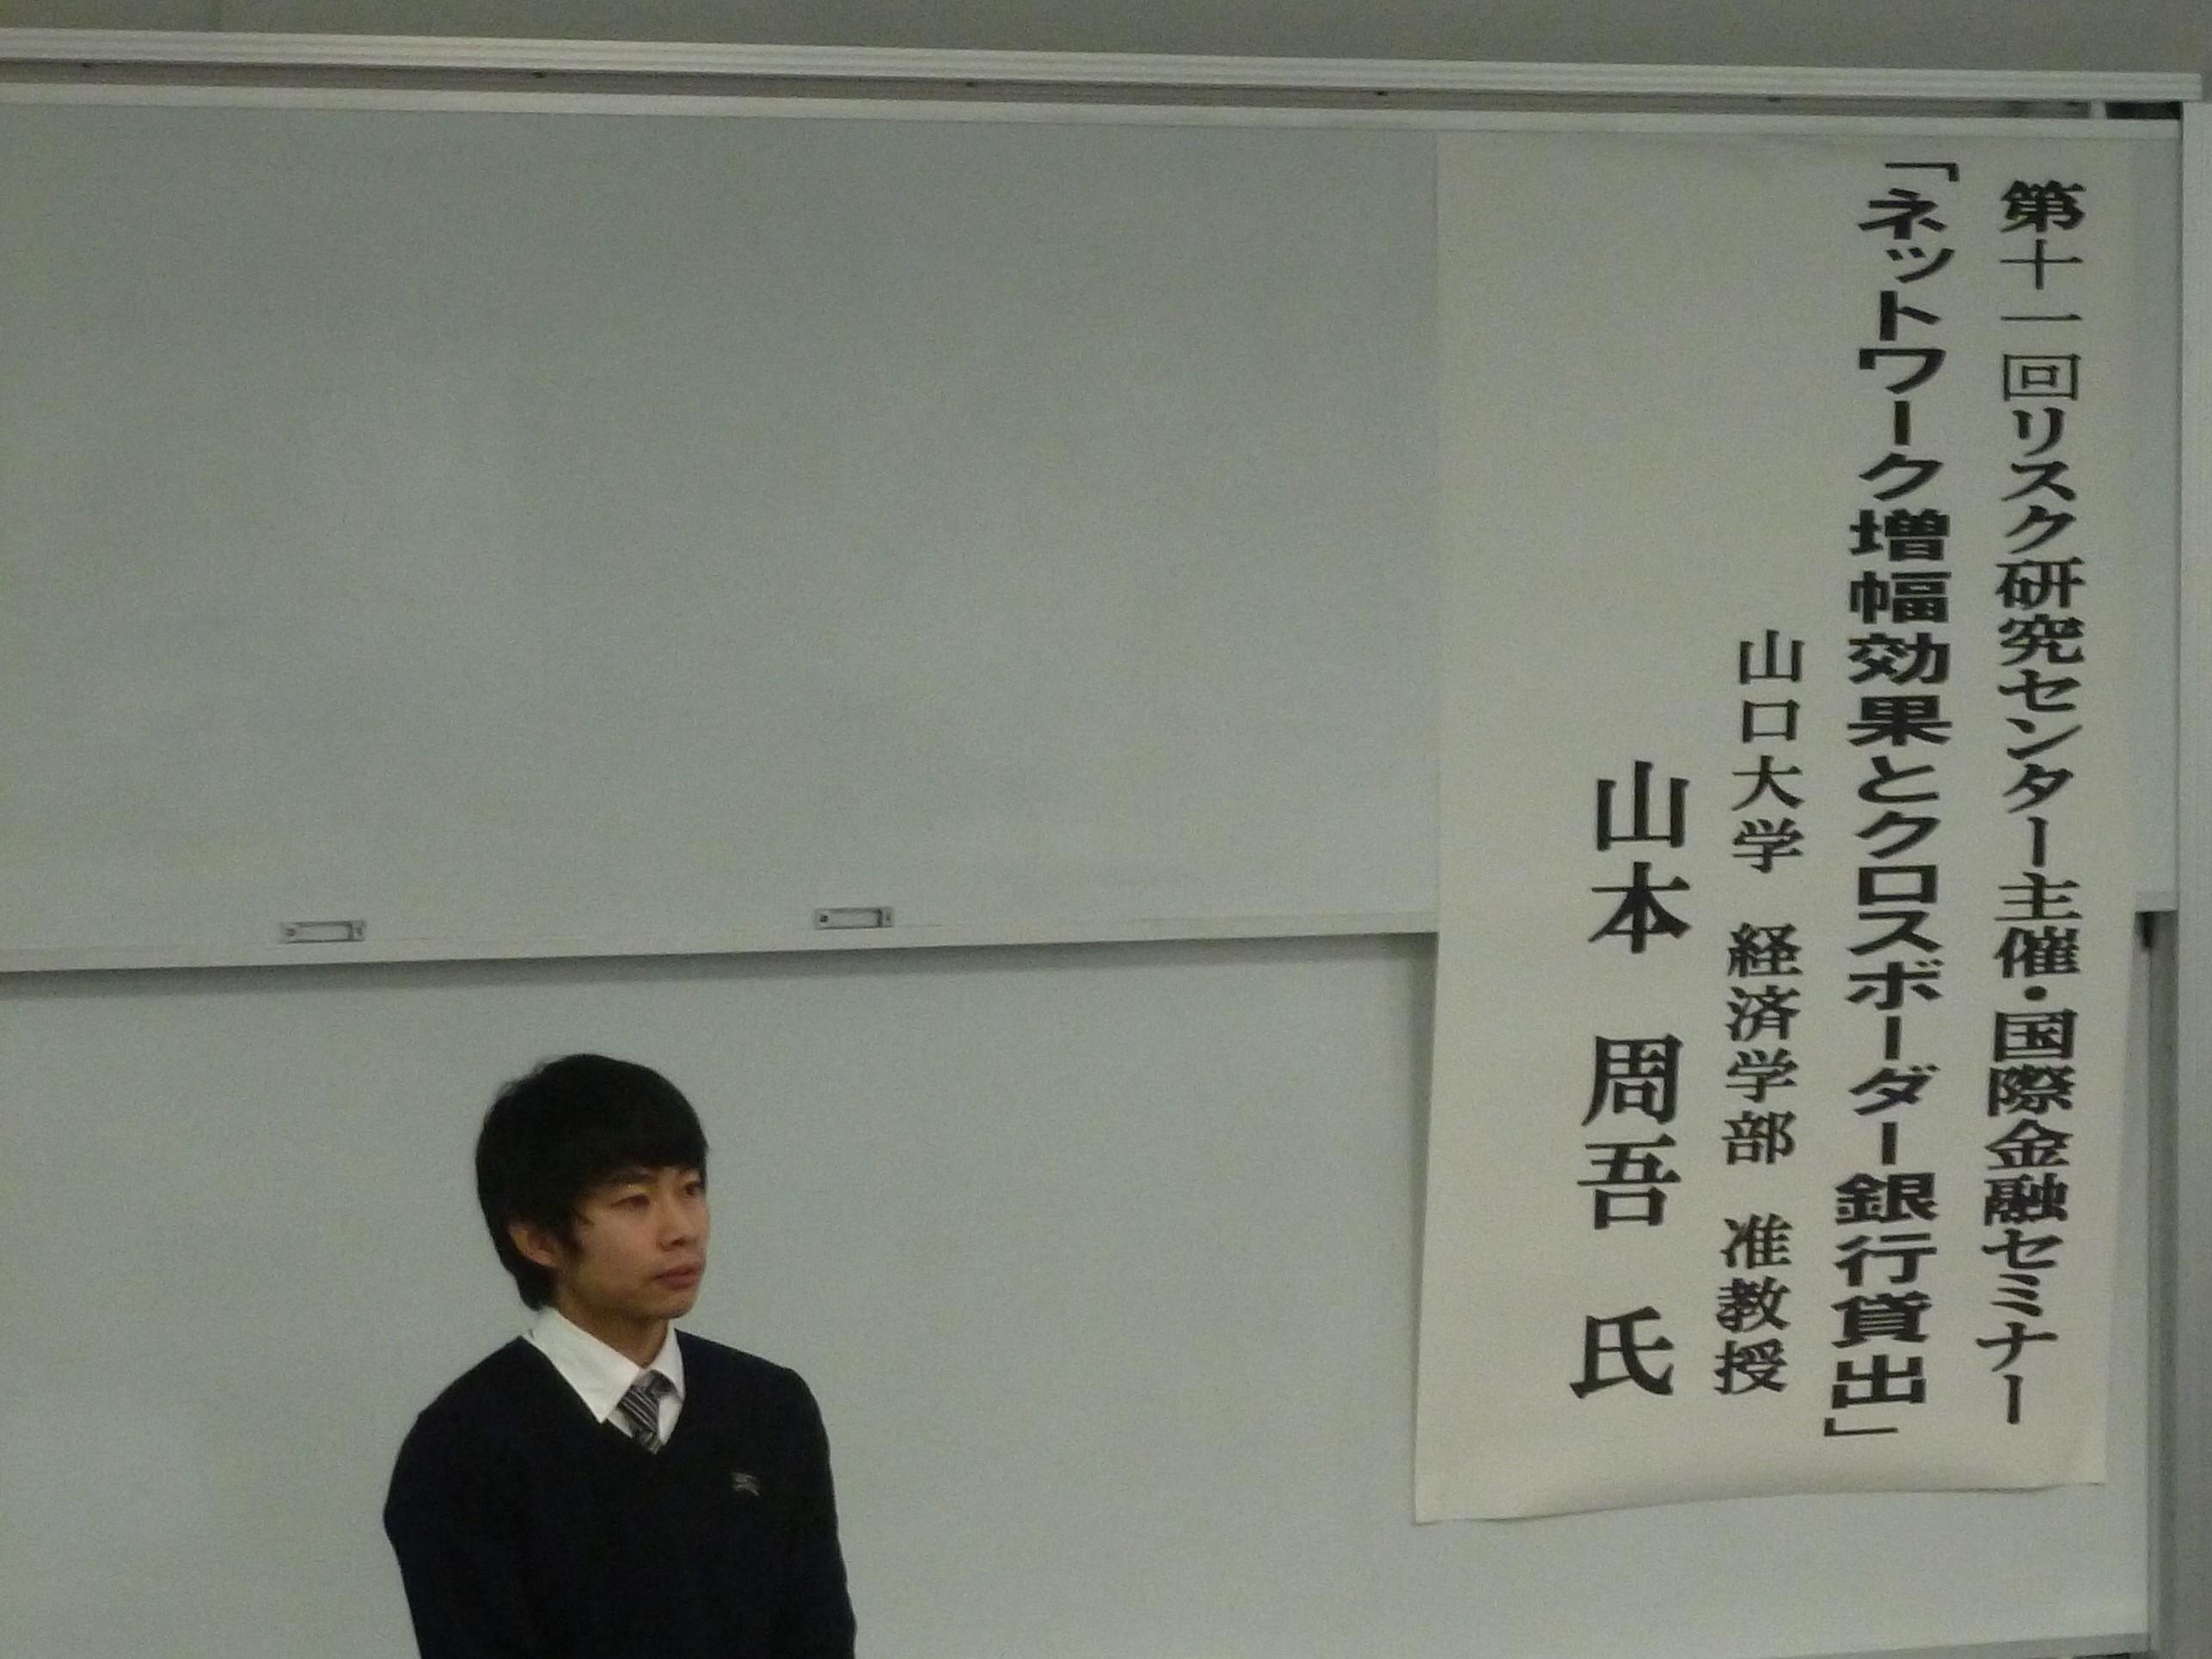 第十一回リスク研究センター主催・国際金融セミナー
「ネットワーク増幅効果とクロスボーダー銀行貸出」
山口大学 経済学部 准教授
山本 周吾 氏